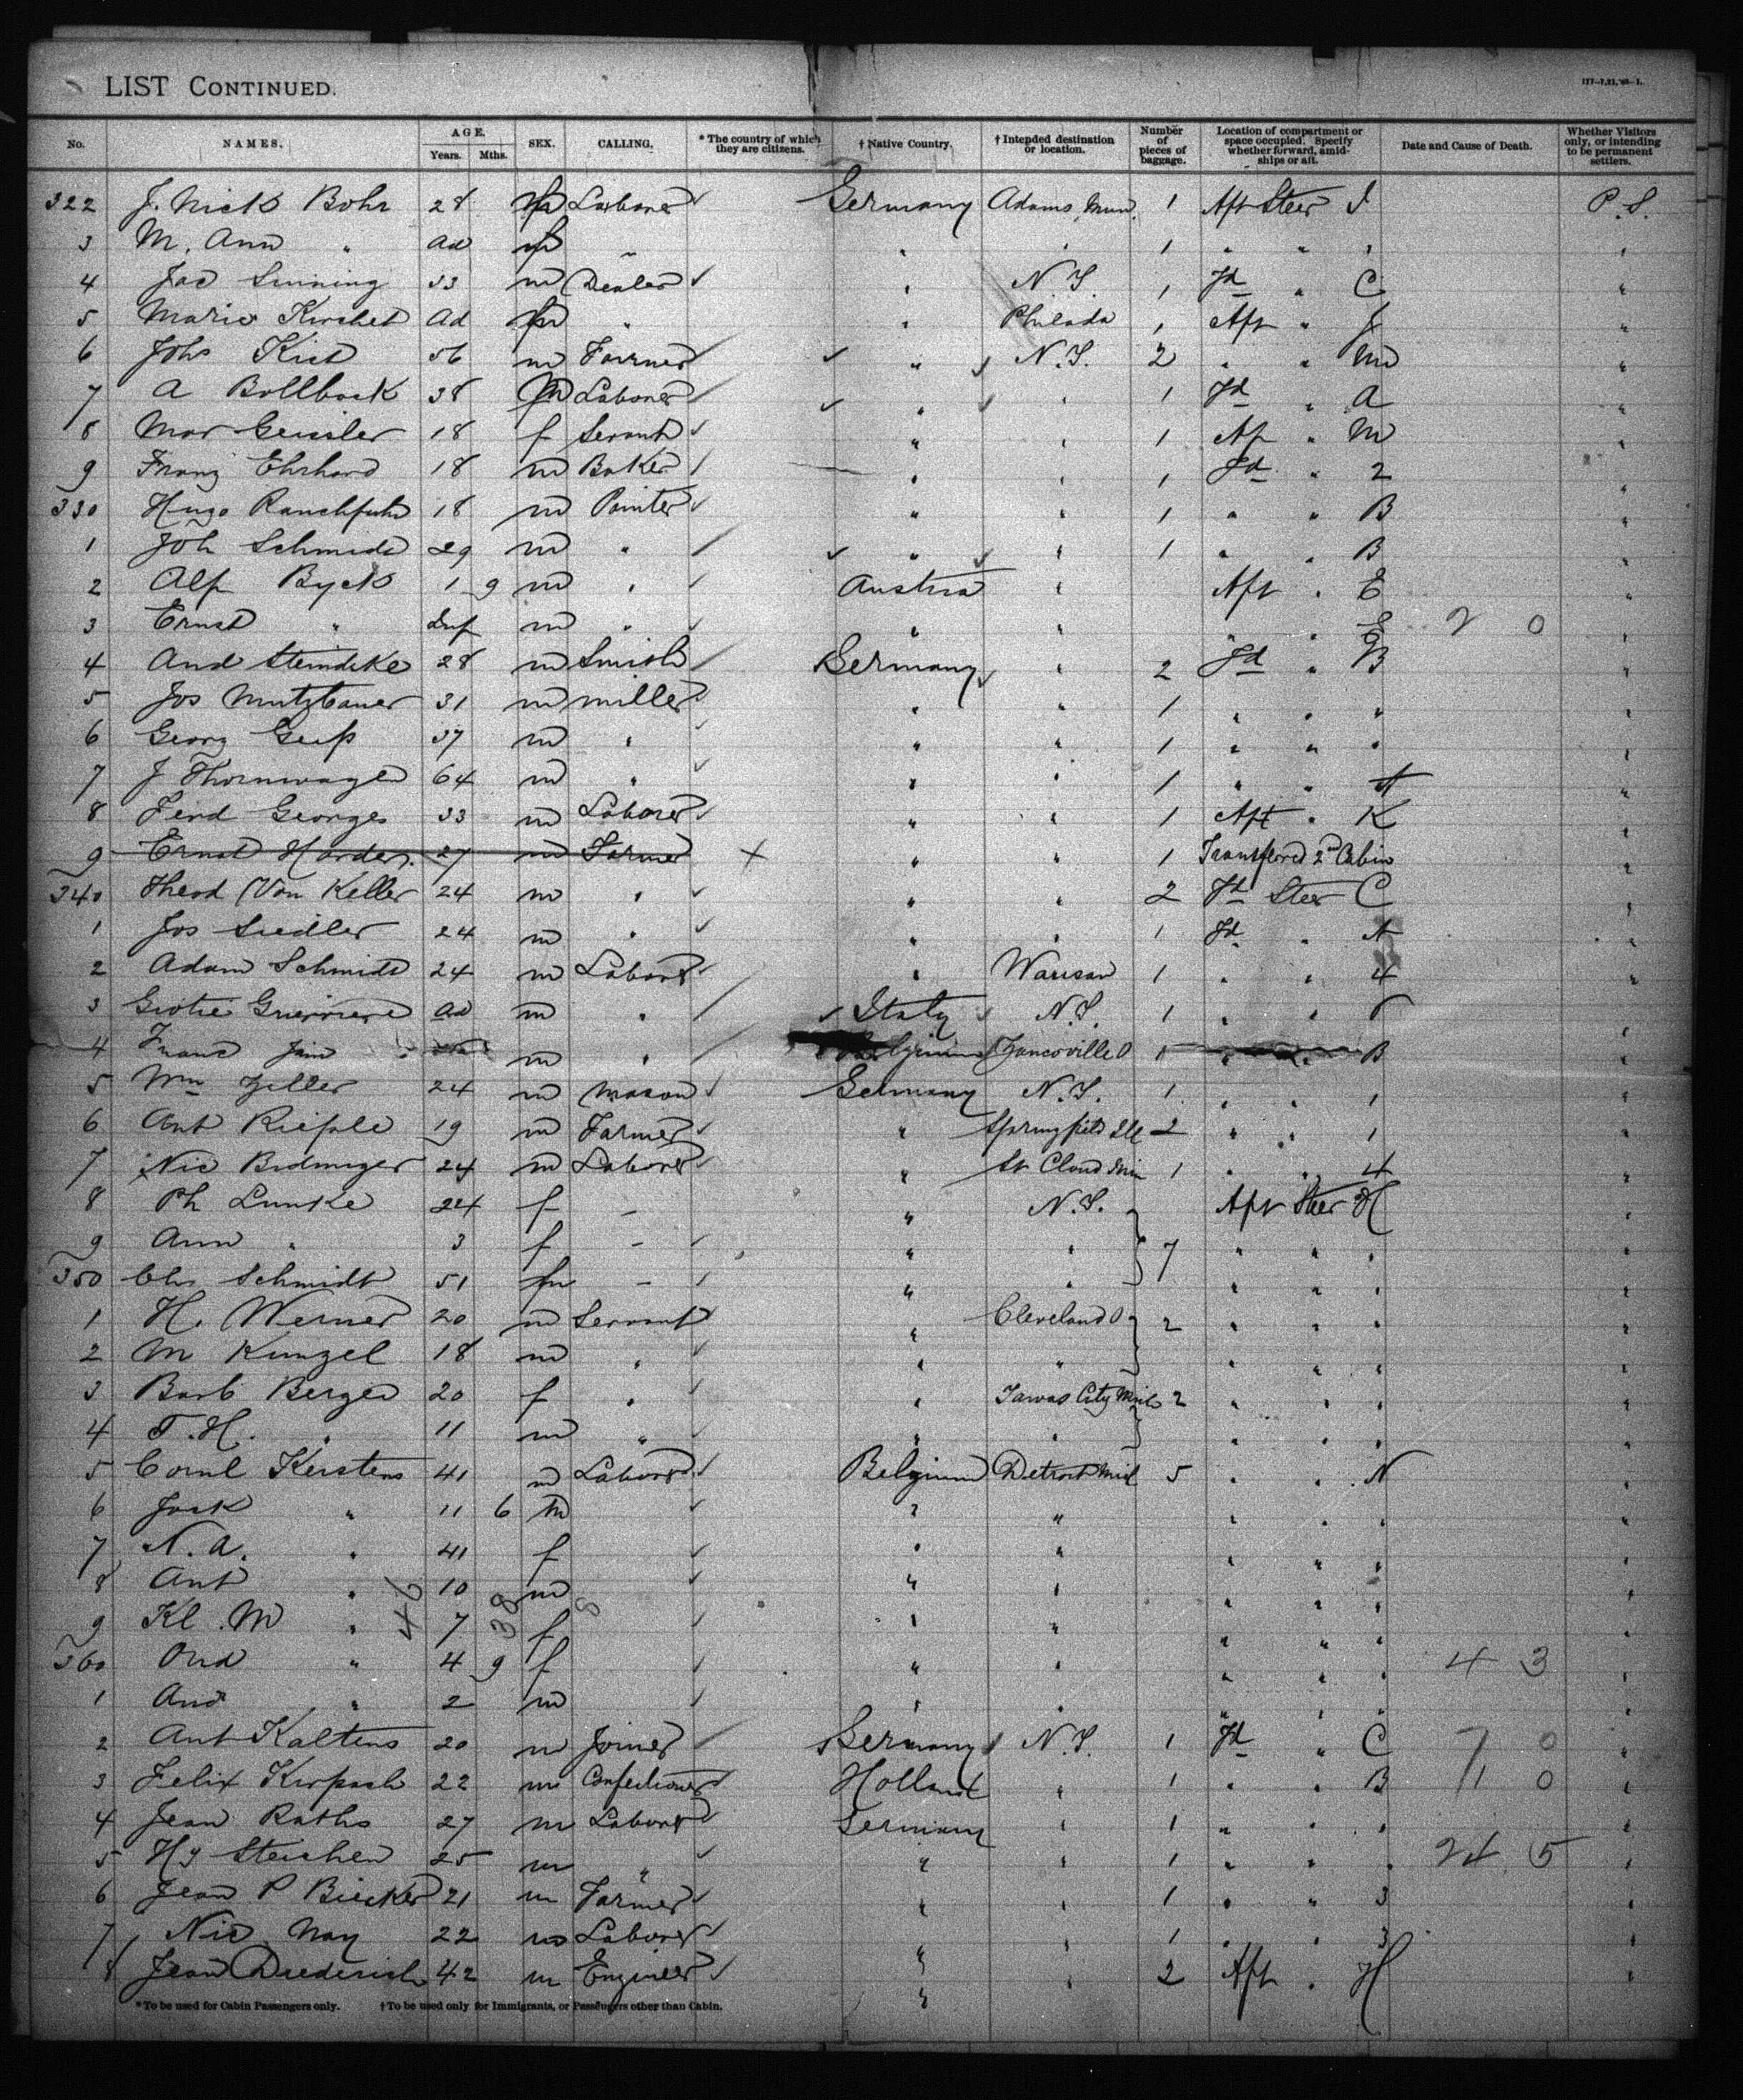 LIST CONTINUED.
177-7,21,'93-1.
No. NAMES. AGE. Years. Mths. SEX. CALLING. * The country of which they are citizens. † Native Country. † Intended destination or location. Number of pieces of baggage. Location of compartment or space occupied. Specify whether forward, amidships or aft. Date and Cause of Death. Whether Visitors only, or intending to be permanent settlers.
322 J. Nick Bohr 28 Laborer Germany Adams, 1 Aft Steer P.S.
3 M. Ann " ad " " 1 " " "
4 Jac 33 m Dealer " N.Y. 1 Fd " C "
5 Marie ad " " Philada 1 Aft " "
6 Joh Kist 56 m Farmer " N.Y. 2 " " M "
7 A Bollback 38 m Laborer " " 1 Fd " A "
8 Mar Geissler 18 f Servant " " 1 Aft " M "
9 Franz Ehrhard 18 m Baker " " 1 Fd " 2 "
330 Hugo 18 m Painter " " 1 " " B "
1 Joh Schmidt 29 m " " " 1 " " B "
2 Alf Byck 1 9 m " Austria " Aft " E "
3 Ernst " Inf m " " " " " E 2 0 "
4 And Steindeke 28 m Smith Germany " 2 Fd " B "
5 Jos Mutzbauer 31 m miller " " 1 " " " "
6 Georg 37 m " " " 1 " " " "
7 J Thornwagen 64 m " " " 1 " " A "
8 Ferd Georges 33 m Laborer " " 1 Aft " K "
9 Ernst Harder. 27 m Farmer X " " 1 Transferred 2nd Cabin "
340 Theod Von Keller 24 m " " " 2 Fd Steer C "
1 Jos Siedler 24 m " " " 1 Fd " A "
2 Adam Schmidt 24 m Laborer " 1 " " 4 "
3 ad m " Italy N.Y. 1 " " "
4 Franc m " Belgium 1 " " B "
5 Wm Zeller 24 m Mason Germany N.Y. 1 " " 1 "
6 Ant Rieple 19 m Farmer " Springfield Ill 2 " " 1 "
7 Nic 24 m Laborer " St Cloud Min 1 " " 4 "
8 Ph Lunke 24 f - " N.Y. Aft Steer H "
9 Ann " 3 f - " " 7 " " " "
350 Chr Schmidt 51 m - " " " " " "
1 H. Werner 20 m Servant " Cleveland O 2 " " " "
2 M Kunzel 18 m " " " " " " "
3 Barb Berger 20 f " " Tawas City Mich 2 " " " "
4 T. H. " 11 m " " " " " " "
5 Cornl Kerstens 41 m Laborer Belgium Detroit Mich 5 " " N "
6 Jack " 11 6 m " " " " " "
7 N. A. " 41 f " " " " " "
8 Ant " 10 m " " " " " "
9 Kl. M " 46 7 38 f 8 " " " " " "
360 Ond " 4 9 f " " " " " 4 3 "
1 And " 2 m " " " " " "
2 Ant Kaltens 20 m Joiner Germany N.Y. 1 Fd " C 7 0 "
3 Felix Kirpach 22 m Confectioner Holland " 1 " " B 11 0 "
4 Jean Raths 27 m Laborer Germany " 1 " " " "
5 Hy Steichen 25 m " " " 1 " " " 24 5 "
6 Jean P Biecker 21 m Farmer " " 1 " " 3 "
7 Nic May 22 m Laborer " " 1 " " 3 "
8 Jean Diederich 42 m Engineer " " 2 Aft " H "
*To be used for Cabin Passengers only. †To be used only for Immigrants, or Passengers other than Cabin.